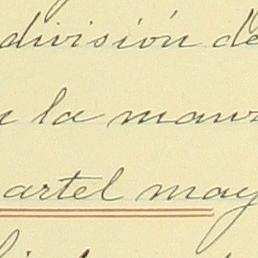 división de
la manz
artel may